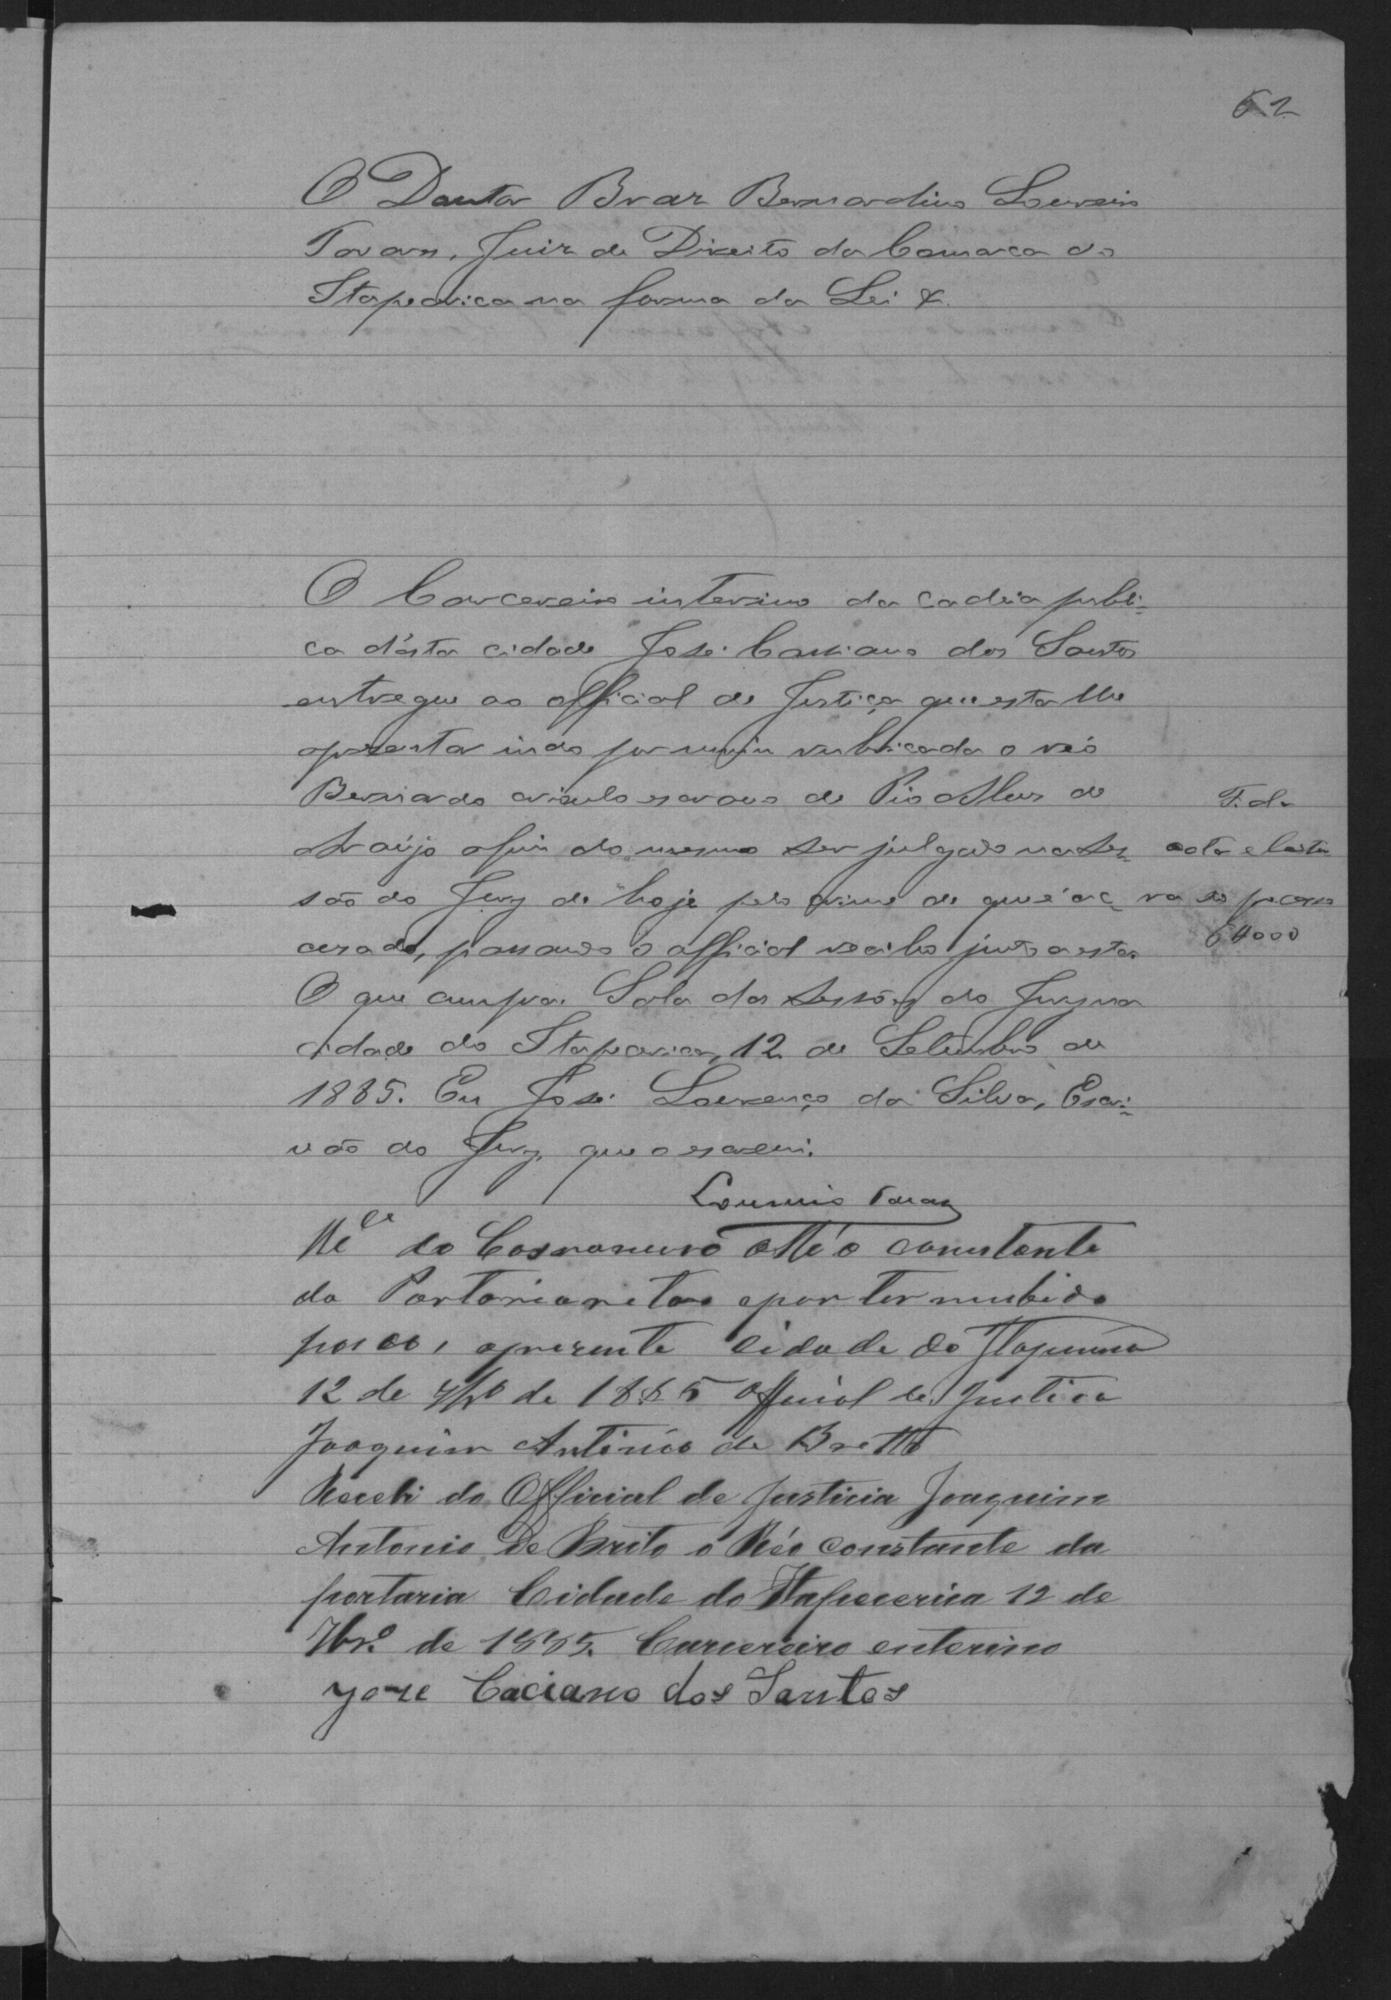 62
O Doutor Braz Bernardino Loureiro
Tavares, Juiz de Direito da Comarca do
Itapecerica na forma da Lei &.
O Carcereiro interino da cadêa publi-
ca d'ésta cidade José Cassiano dos Santos
entregue ao official de Justiça que esta lhe
apresentar indo por mim rubricada o réo
Bernardo crioulo escravo de Pio Alves de
Araújo afim do mesmo ser julgado na Ses-
são do Jury de hoje pelo crime de que é ac-
cusado, passando o official recibo junto a esta.
O que cumpra. Sala das Sessões do Jury na
cidade do Itapecerica, 12 de Setembro de
1885. Eu José Lourenço da Silva, Escri-
vão do Jury que o escrevi.
Loureiro Tavares
F. da
nº 6
6$000
do Carcereiro o Réo constante
da Portaria retro e por ter recebido
paço, a presente Cidade do Itapecerica
12 de 7bro de 1885 Official de Justiça
Joaquim Antônio de Britto
Recebi do Official de Justicia Joaquim
Antonio de Brito o Réo constante da
portaria Cidade do Itapecerica 12 de
7br.o de 1885. Carcereiro enterino
Joze Caciano dos Santos